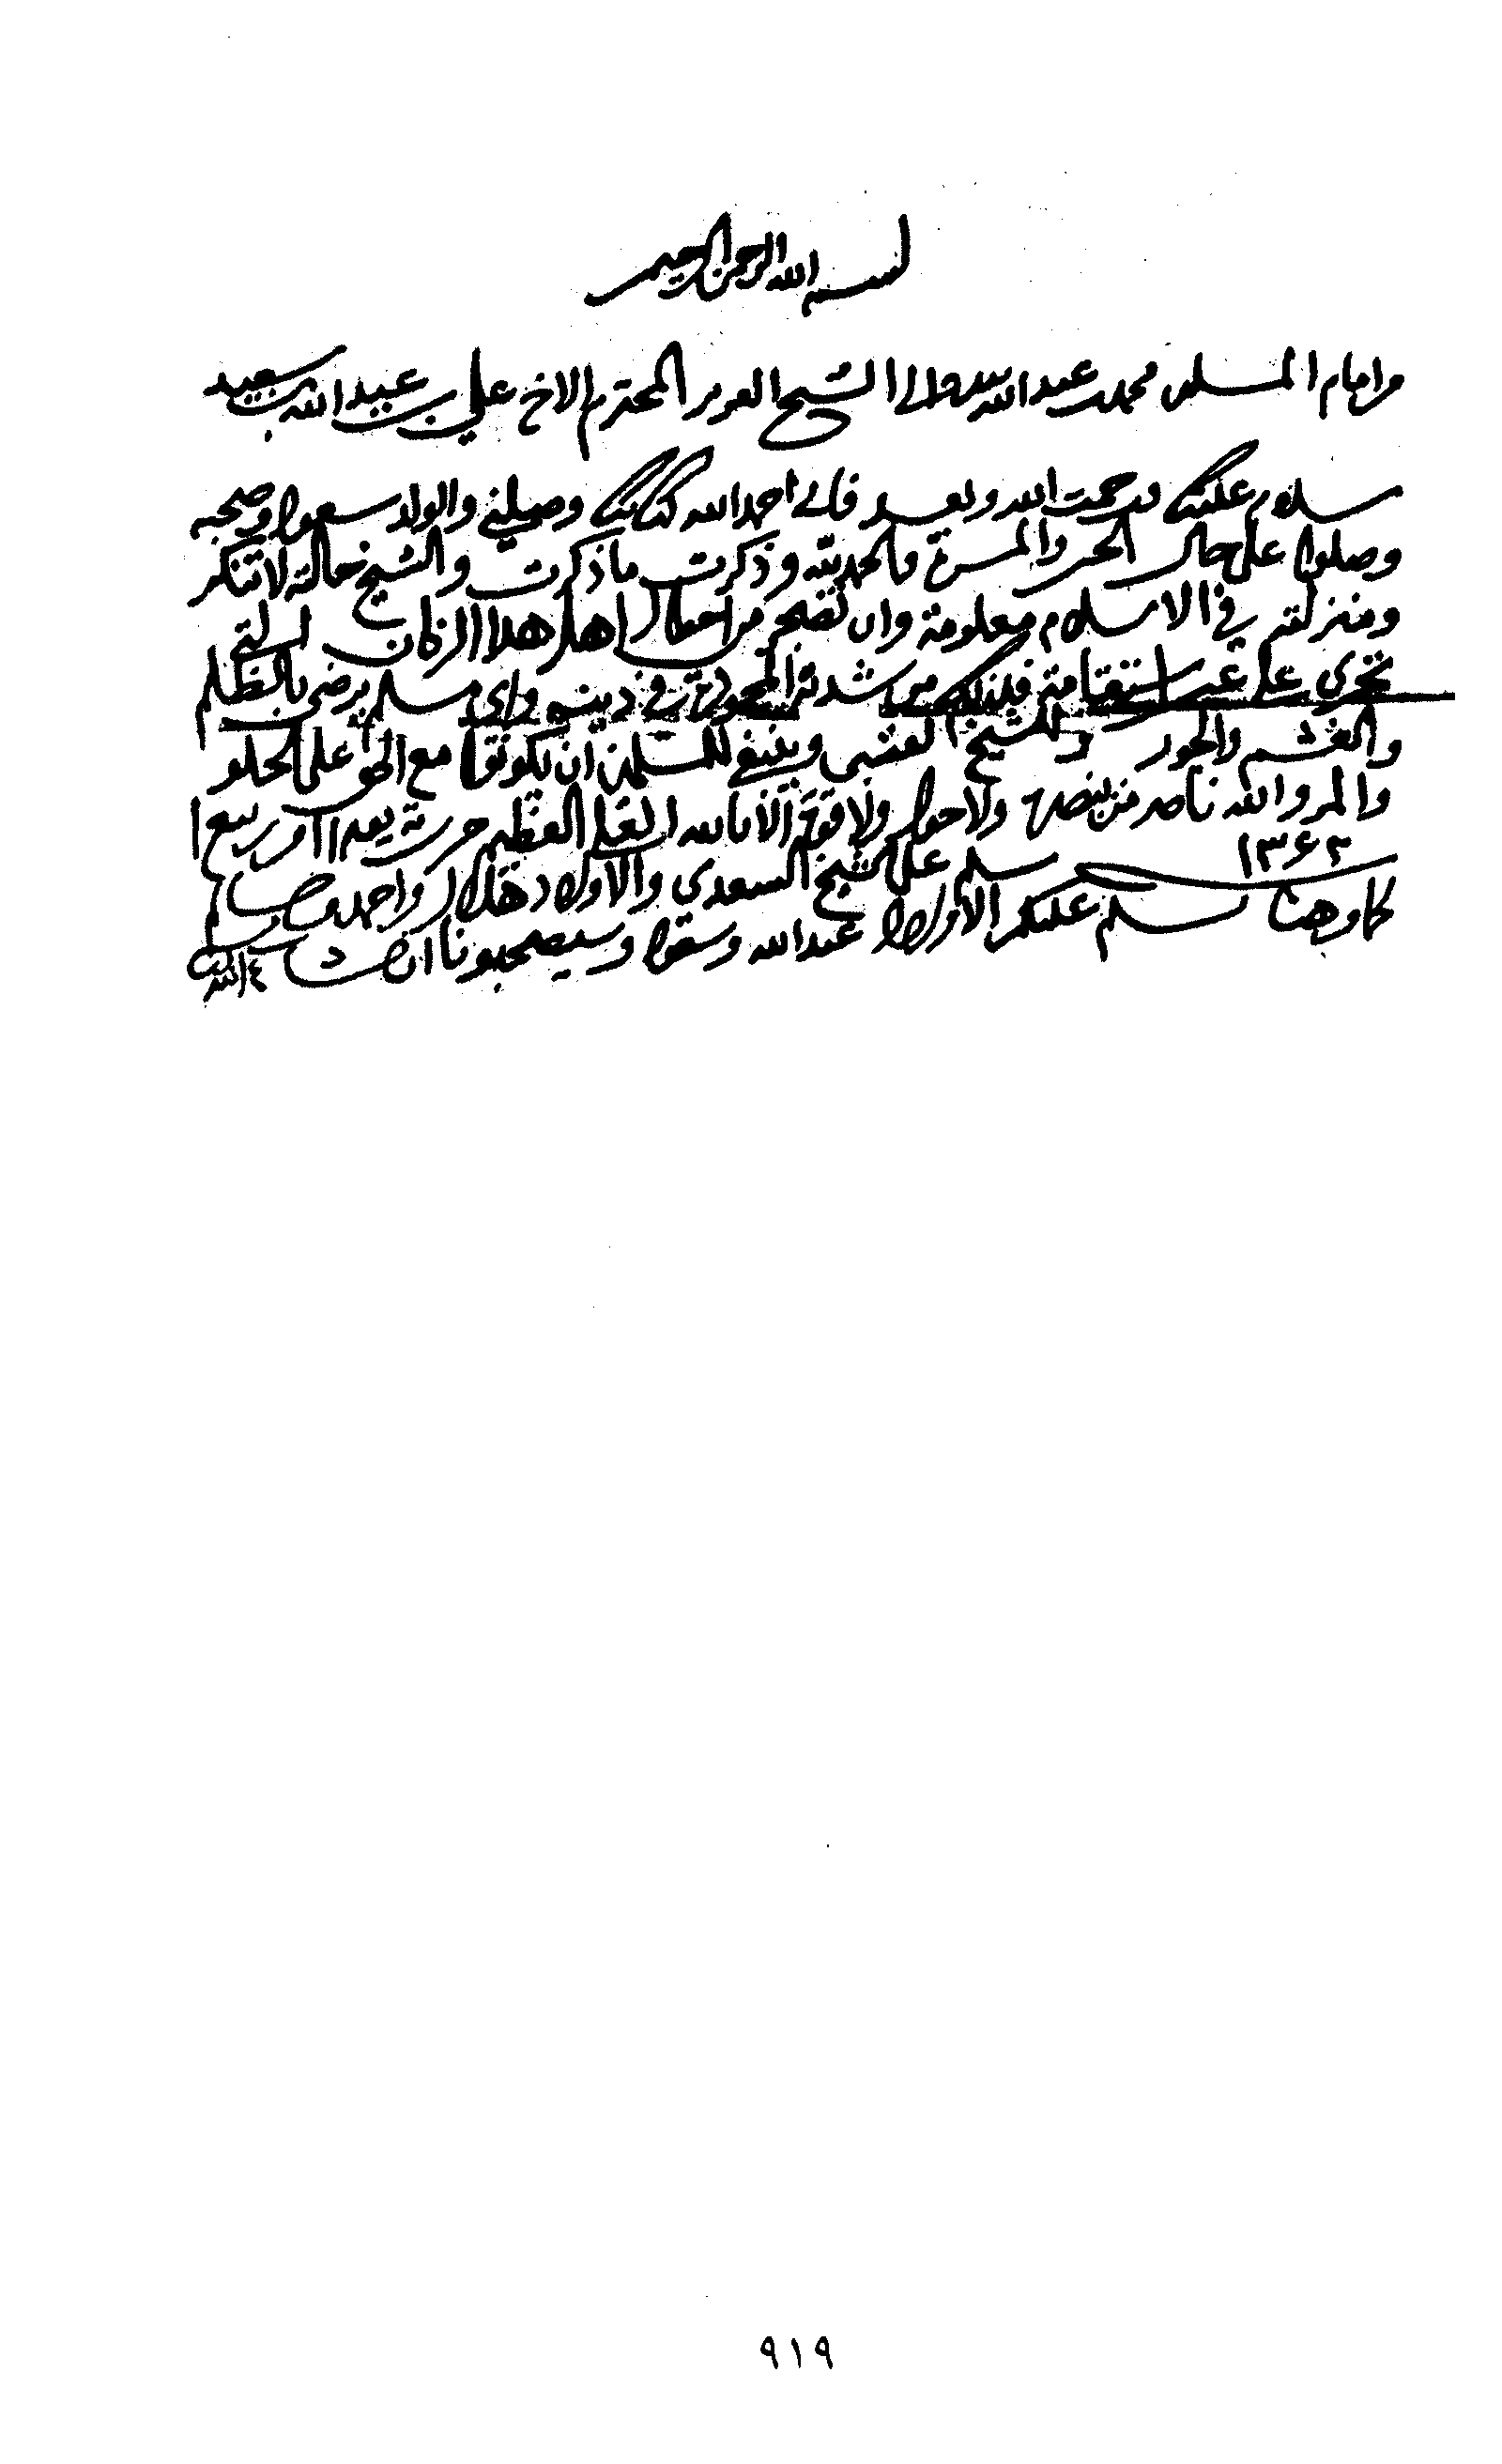 بسم الله الرحمن الرحيم
من امام المسلمين محمد بن عبدالله بيده الى الشيخ العزيز المحترم الاخ علي بن عبيد الله بن سعيد
سلام عليك ورحمت الله وبعد فاني احمد الله كتابك وصلني والولد سعود وصحبه
وصلوا على حال الخير والمسرة فالحمد لله وذكرت ما ذكرت والشيخ حالته لا تنكر
ومنزلته في الاسلام معلومة وان تضجر من اعمال اهل هذا الزمان التي
تجري على غير استقامة فلذلك من شدة في دينه واي مسلم يرضى بالظلم
والغشم والجور الشيخ العتبى وينبغي للمسلمين ان يكونوا مع الحق على الحلو
والمر والله ناصر من ينصره ولا حول ولا قوة الا بالله العلي العظيم حررته يوم ١١ من ربيع ١
١٣٦٢
سلم على الشيخ السعدي والاولاد هلال واحمد
كما وهنا يسلم عليكم الاولاد عبدالله وسيصحبونا ان شاء الله
٩١٩